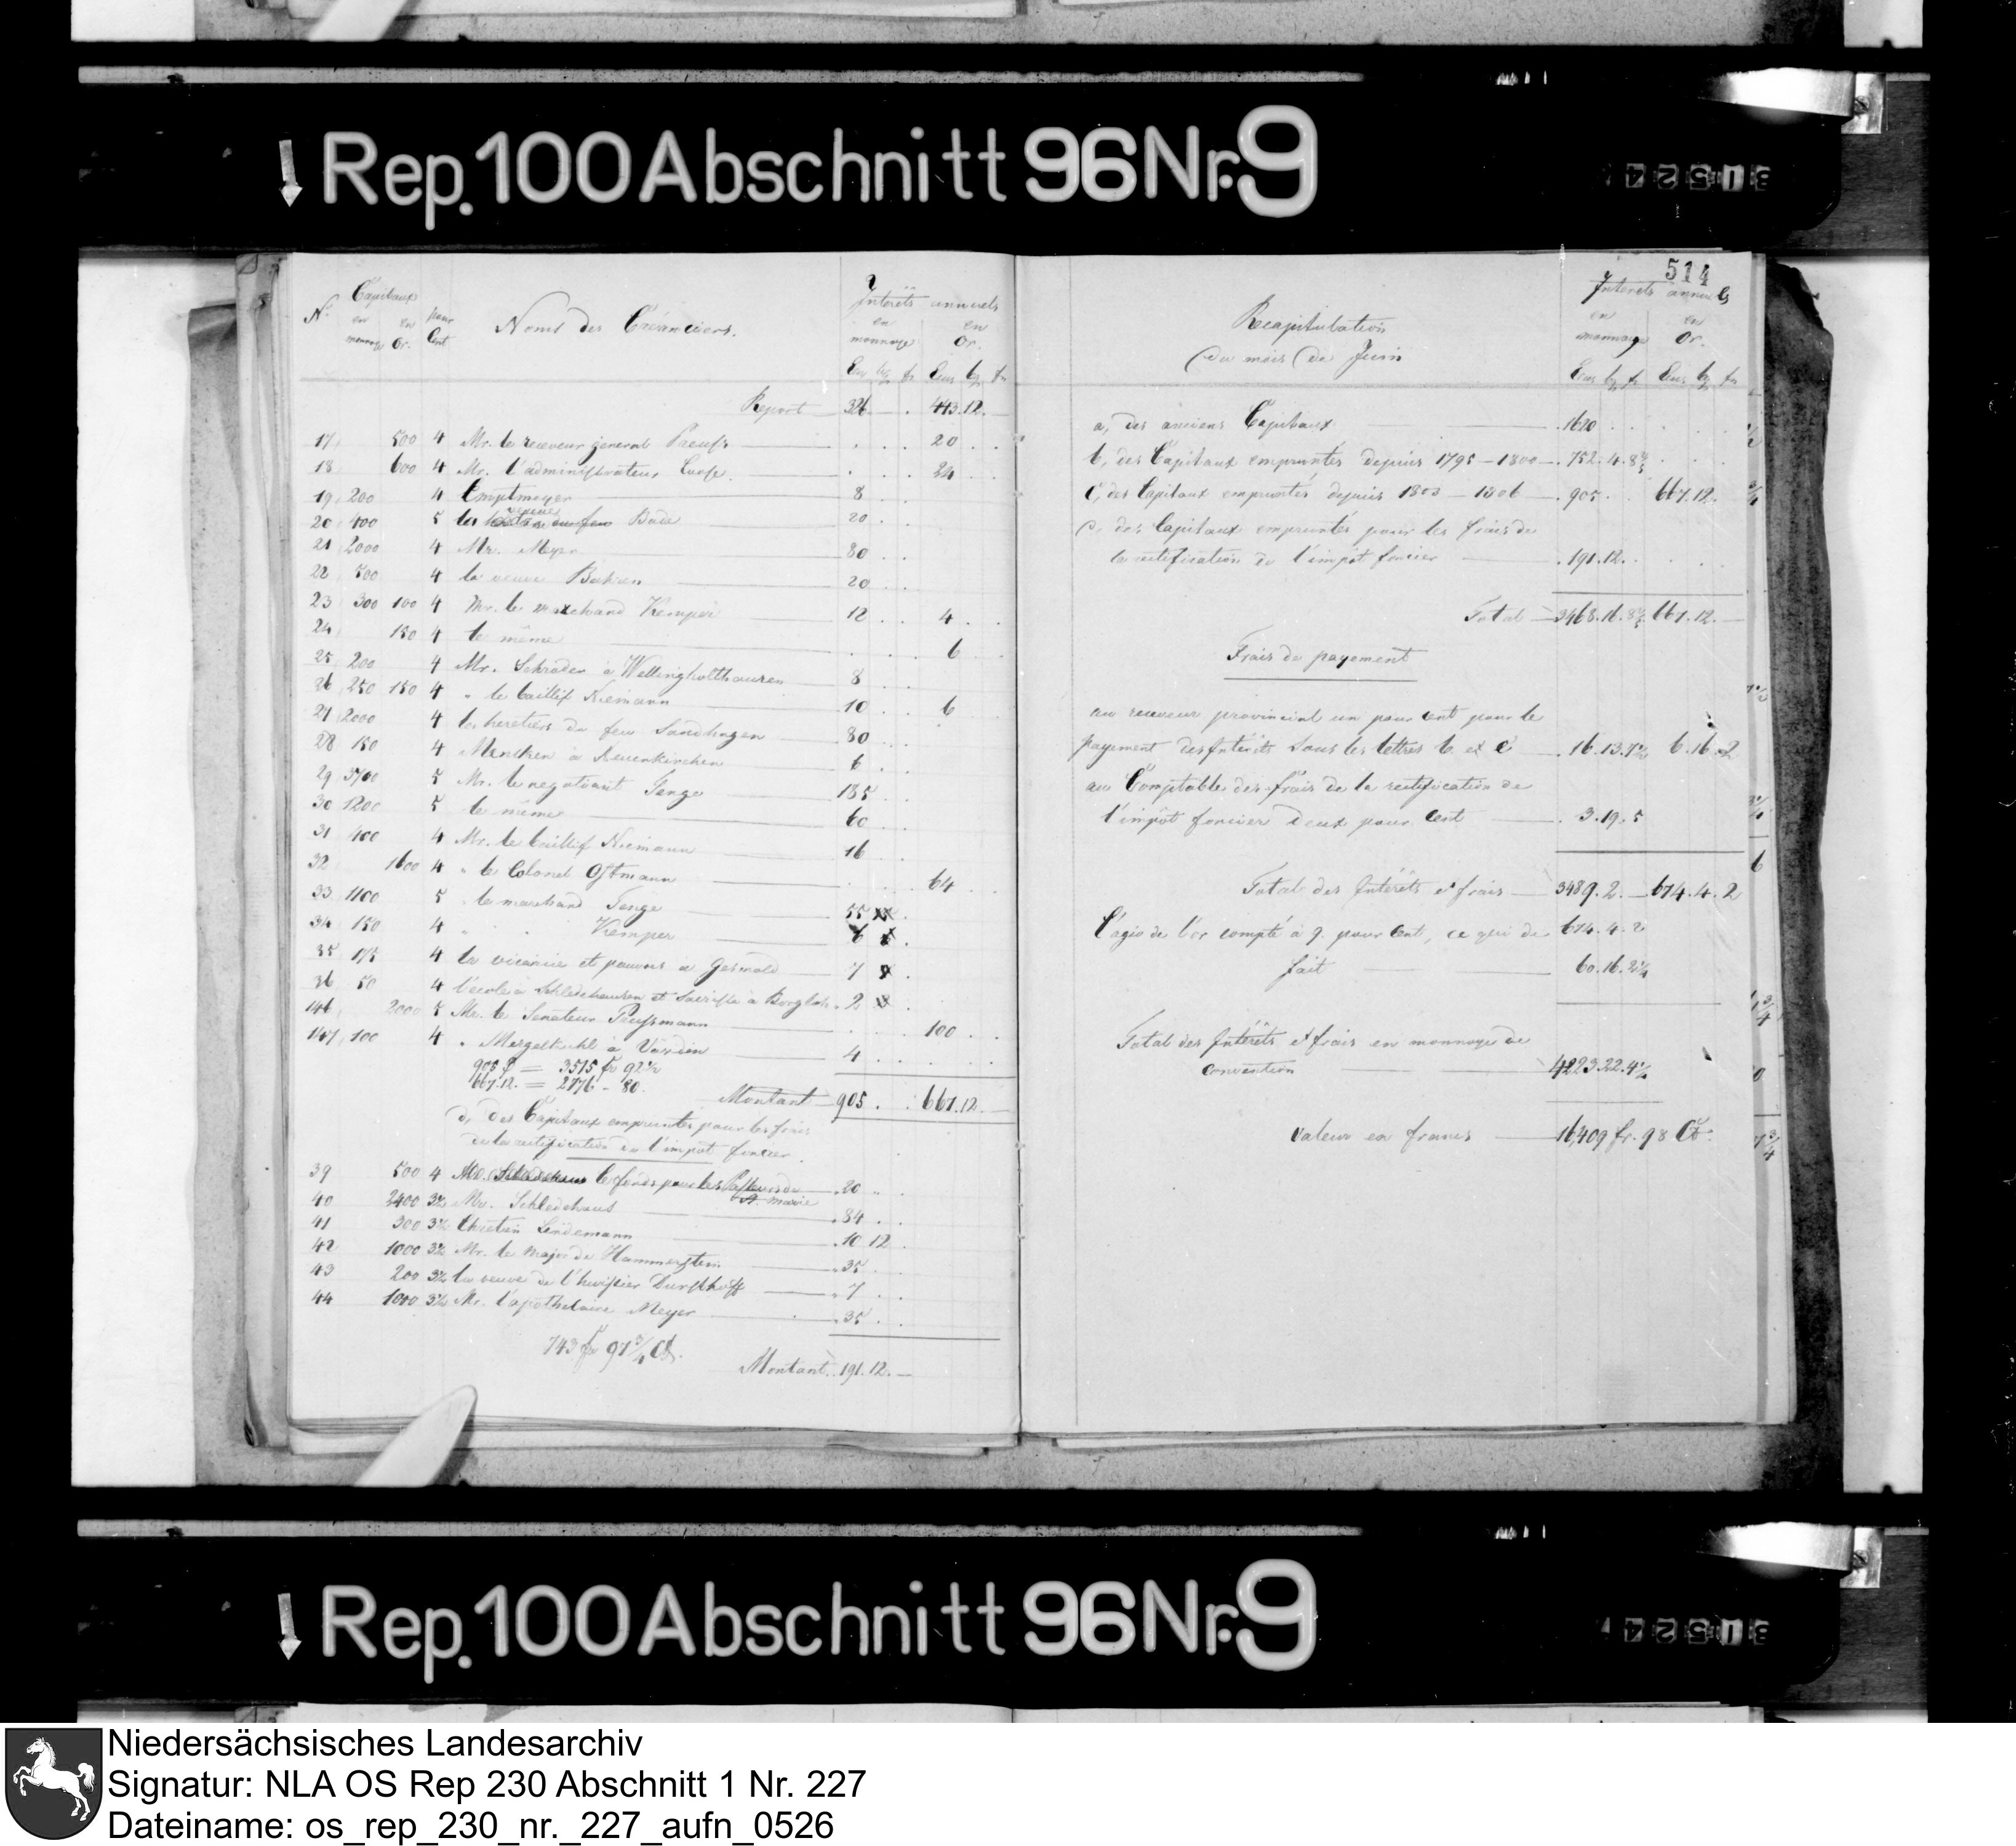 Rep. 100 Abschnitt 96 Nr. 9
31524
No. Capitaux en monnaye en Or. pour Cent Noms des Créanciers. Intérêts annuels en monnaye en Or.
Ecus bg fr Ecus bg fr
Report 326. — . 443.12. —
17, 500 4 Mr. le receveur general 20
18 600 4 Mr. l'administrateur 24
19, 200 4 8
20 400 5 la veuve 20
21 2000 4 Mr. Meyer 80
22 500 4 la veuve 20
23 300 100 4 Mr. le marchand Kemper 12 4
24, 150 4 le même 6
25 200 4 Mr. Schrader à Wellingholthausen 8
26 250 150 4 " le baillif Niemann 10 6
27 2000 4 les heretiers du feu Sandhagen 80
28 150 4 Mencken à Neuenkirchen 6
29 3700 5 Mr. le negotiant Tenge 185
30 1200 5 le même 60
31 400 4 Mr. le baillif Niemann 16
32 1600 4 " le Colonel Ostmann 64
33 1100 5 " le marchand Tenge 55
34 150 4 " " Kemper 6
35 175 4 la vicairie et pauvres à Gesmold 7
36 50 4 l'ecole à Schledehausen et Sacristie à Borgloh 2
146 2000 5 Mr. le Senateur 100
147 100 4 " à 4
905 = 3515 fr 92½
667.12. = 2776 - 80.
Montant 905 . . 667.12. —
d, des Capitaux empruntés pour les frais
de la rectification de l'impot foncier.
39 500 4 le fonds pour les de
St. Marie 20
40 2400 3½ Mr. Schledehaus 84
41 300 3½ Chretien Lindemann 10 12
42 1000 3½ Mr. le Major de Hammerstein 35
43 200 3½ la veuve de l'huissier 7
44 1000 3½ Mr. l'apothecaire Meyer 35
743 fr 97¾ Ct.
Montant 191.12. —
514
Recapitulation Intérêts annuels
du mois de Juin en monnaye en Or.
Ecus bg fr Ecus bg fr
a, des anciens Capitaux 1620
b, des Capitaux empruntés depuis 1795 – 1800 752.4.8
c, des Capitaux empruntés depuis 1803 – 1806 905 667.12.
des Capitaux empruntés pour les frais de
la rectification de l'impôt foncier 191.12.
Total 3468.16.8 667.12. —
Frais de payement
au receveur provincial un pour Cent pour le
payement des Intérêts sous les lettres b et c 16.13.7½ 6.16.2
au Comptable des frais de la rectification de
l'impôt foncier deux pour Cent 3.19.5
Total des Intérêts et frais 3489.2. — 674.4.2
L'agio de l'or compté à 9. pour Cent, ce qui de 674.4.2
fait 60.16.2¼
Total des Intérêts et frais en monnaye de
convention 4223.22.4¼
Valeur en francs 16,409 fr. 98 Ct.
Rep. 100 Abschnitt 96 Nr. 9
31524
Niedersächsisches Landesarchiv
Signatur: NLA OS Rep 230 Abschnitt 1 Nr. 227
Dateiname: os_rep_230_nr._227_aufn_0526